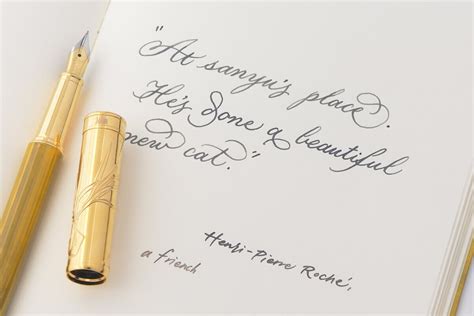 "At sanyu's place.
He's done a beautiful
new cat."
Henri-Pierre Roché,
a friend